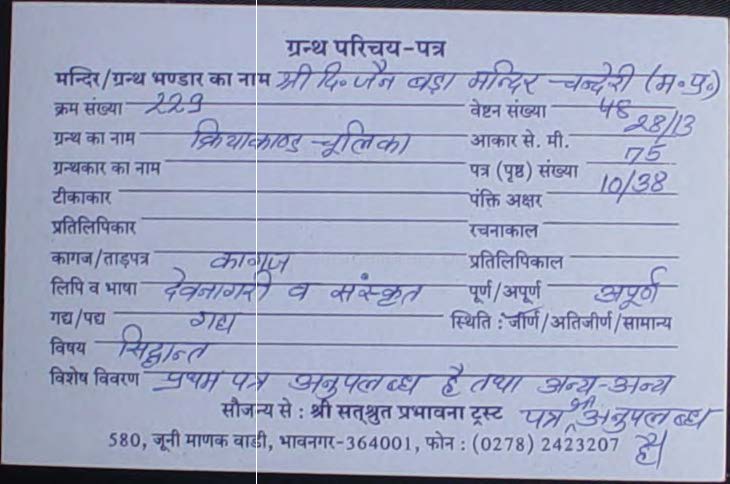 ग्रन्थ परिचय-पत्र
मन्दिर/ग्रन्थ भण्डार का नाम श्री दि. जैन बड़ा मन्दिर चन्देरी (म.प्र.)
क्रम संख्या 229 वेष्टन संख्या 48
ग्रन्थ का नाम क्रियाकाण्ड चूलिका आकार से. मी. 28/13
ग्रन्थकार का नाम पत्र (पृष्ठ) संख्या 75
टीकाकार पंक्ति अक्षर 10/38
प्रतिलिपिकार रचनाकाल
कागज/ताड़पत्र कागज प्रतिलिपिकाल
लिपि व भाषा देवनागरी व संस्कृत पूर्ण/अपूर्ण अपूर्ण
गद्य/पद्य गद्य स्थिति : जीर्ण/अतिजीर्ण/सामान्य
विषय सिद्धान्त
विशेष विवरण प्रथम पत्र अनुपलब्ध है तथा अन्य-अन्य
सौजन्य से : श्री सत्श्रुत प्रभावना ट्रस्ट पत्र भी अनुपलब्ध
580, जूनी माणक वाडी, भावनगर-364001, फोन : (0278) 2423207 है।